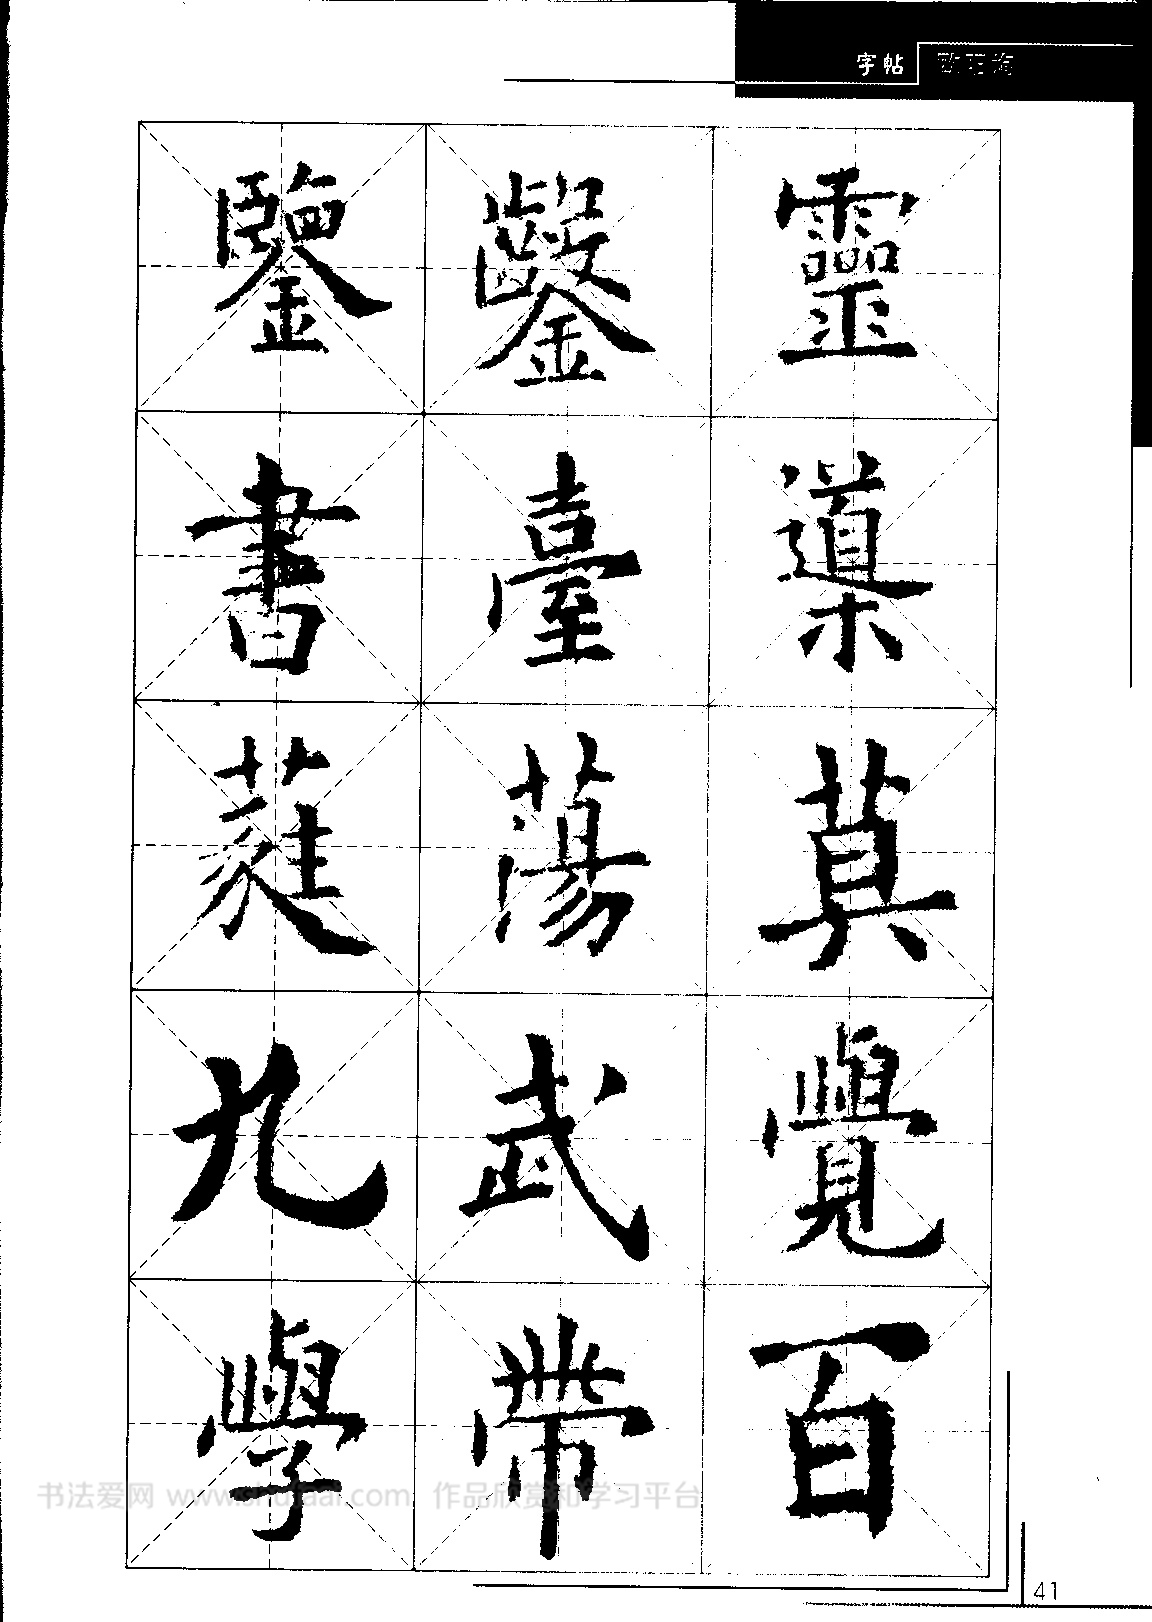 字帖 欧阳询
靈莫覺百
鑿臺蕩武帶
鑒書蕤九學
书法爱网 www.shufaai.com 作品欣赏和学习平台
41